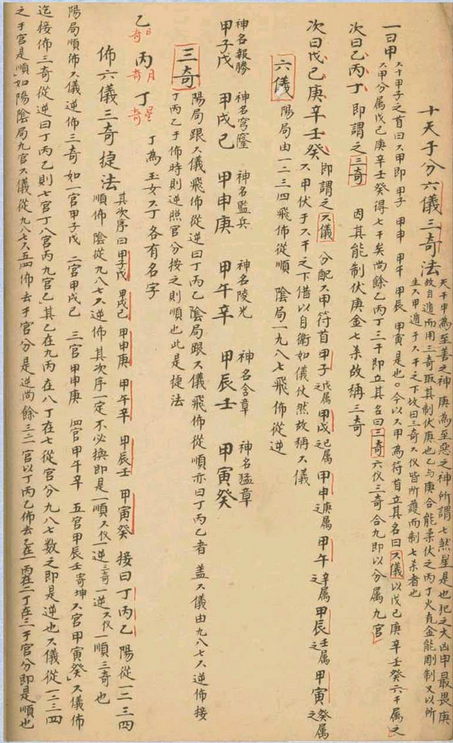 十天子分六儀三奇法
天干中為至善之神庚為至惡之神所謂七煞星是也犯之大凶甲最畏庚
故自遁而用三奇取其制伏庚也乙与庚合能柔伏之丙丁火克金能剛制又以所
一曰甲
六十甲子之首曰六甲即甲子 甲申 甲午 甲辰 甲寅是也。今以六甲為符首立其名曰六儀以戊己庚辛壬癸六干属之
六甲分属戊己庚辛壬癸得七干矣尚餘乙丙丁三干即立其名曰三奇六仪三奇合九即以分属九宮
次曰乙丙丁 即謂之三奇 因其能制伏庚金七杀故稱三奇
次曰戊己庚辛壬癸
即謂之六儀 分配六甲符首甲子戊属之甲戌己属之甲申庚属之甲午辛属之甲辰壬属之甲寅癸属之
六甲伏于六干之下借以自衛如儀伏然故稱六儀
六儀 陽局由一二三四飛佈從順 陰局一九八七飛佈從逆
神名報勝 神名穹窿 神名監兵 神名陵光 神名含章 神名猛章
甲子戊 甲戌己 甲申庚 甲午辛 甲辰壬 甲寅癸
三奇
陽局跟六儀飛佈從逆曰丁丙乙陰局跟六儀飛佈從順亦曰丁丙乙者 蓋六儀由九八七六逆佈接
丁丙乙于佈時則逆照宮分按之則順也此是捷法
乙日奇 丙月奇 丁星奇 丁為玉女六丁各有名字
佈六儀三奇捷法
其次序曰甲子戊 甲戌己 甲申庚 甲午辛 甲辰壬 甲寅癸 接曰丁丙乙 陽從一二三四
順佈 陰從九八七六逆佈其次序一定不必換即是一順六仪一逆三奇一逆六仪一順三奇也
陽局順佈六儀逆佈三奇如一宮甲子戊 二宮甲戌己 三宮甲申庚 四宮甲午辛 五宮甲辰壬寄坤 六宮甲寅癸六儀佈
迄接佈三奇從逆曰丁丙乙則七宮丁八宮丙九宮乙其乙在九丙在八丁在七從宮分九八七数之即是逆也六儀從一二三四
之于宮是順如陽陰局九宮六儀從九八七六五四佈去于宮分是逆尚餘三二一宮以丁丙乙佈去乙在一丙在二丁在三于宮分即是順也